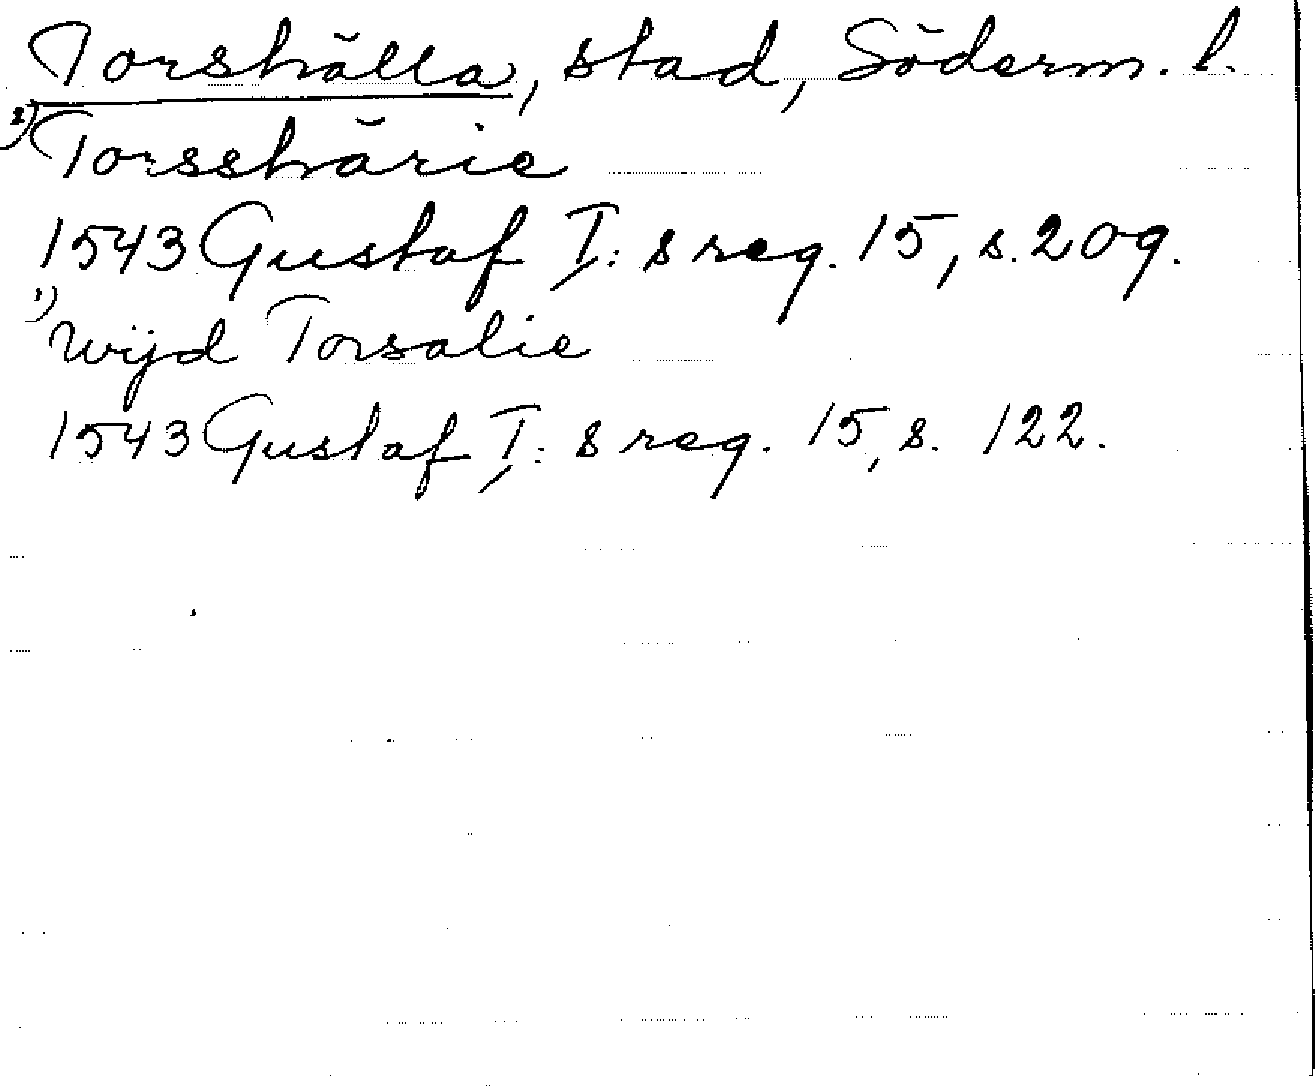 Torshälla, stad, Söderm. l.
2) Torsshärie
1543 Gustaf I:s reg. 15, s. 209.
1) Wijd Torsalie
1543 Gustaf I:s reg. 15, s. 122.